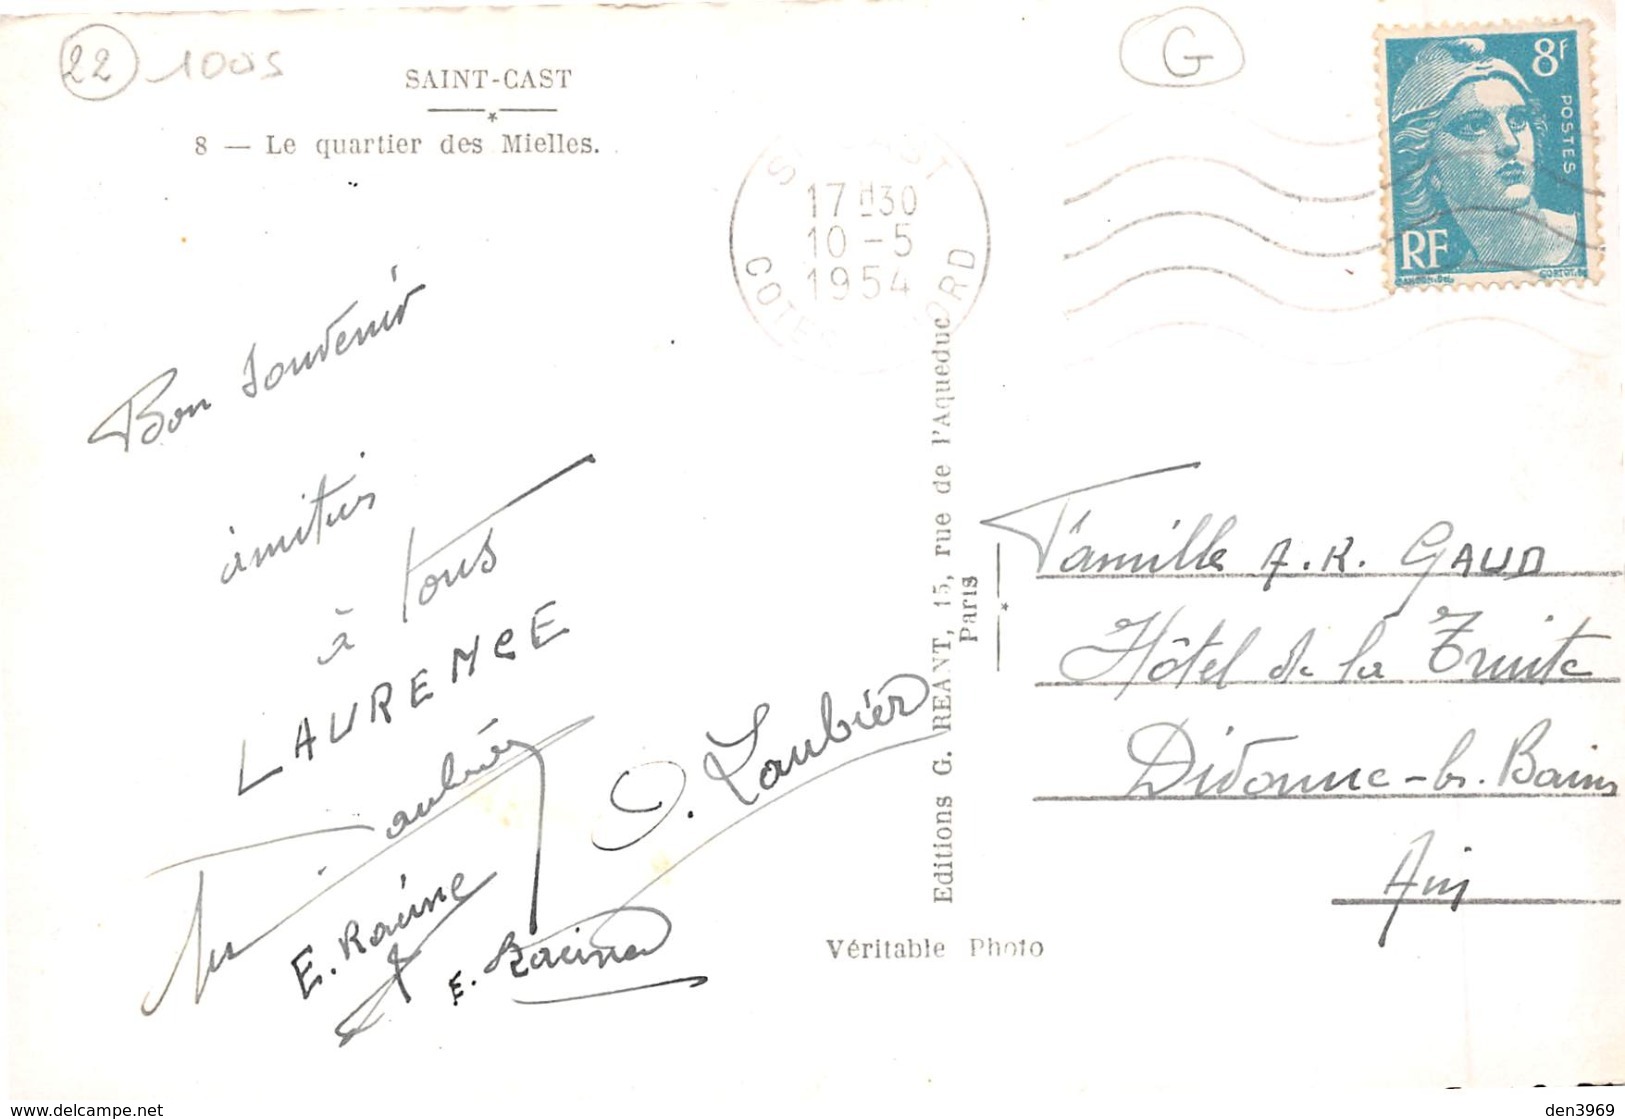 22
1005
G
SAINT-CAST
8 — Le quartier des Mielles.
17H30
10-5
1954
8f
POSTES
RF
Bon souvenir
amitiés
à tous
LAURENCE
Laubier
O. Laubier
E. Racine
E. Racine
Editions G. REANT, 15, rue de l'Aqueduc
Paris
Famille A.R. GAUD
Hôtel de la Truite
Divonne-les-Bains
Ain
Véritable Photo
delcampe.net
den3969